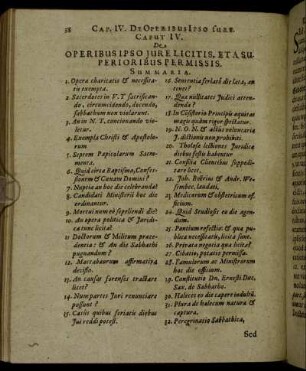 38 CAP. IV. DE OPERIBUS IPSO JURE
CAPUT IV.
DE
OPERIBUS IPSO JURE LICITIS, ET A SU-
PERIORIBUS PERMISSIS.
SUMMARIA.
1. Opera charitatis & necessita-
tis exempta.
2. Sacerdotes in V. T. sacrifican-
do, circumcidendo, docendo,
sabbathum non violarunt.
3. An in N. T. concionando vio-
letur.
4. Exempla Christi & Apostolo-
rum
5. Septem Papicolarum Sacra-
menta.
6. Quid circa Baptismum, Confes-
sionem & Coenam Domini?
7. Nuptiae an hoc die celebrandae?
8. Candidati Ministerii hoc die
ordinantur.
9. Mortui num eo sepeliendi die?
10. An opera politica & Juridi-
ca tunc licita?
11. Doctorum & Militum prace-
dentia: & An die Sabbathi
pugnandum?
12. Maccabaeorum affirmativa
decisio.
13. An causas forenses tractare
licet?
14. Num partes Juri renunciare
possunt?
15. Casus quibus feriatis diebus
Jus reddi potest.
16. Sententia ferlata die lata, an
tenet?
17. Qua nullitates Judici atten-
denda?
18. In Consistorio Principis aequitas
magis quam rigor spectatur.
19. N. O. N. & actus voluntaria
J. dictionis non prohibiti.
20. Tholosae lectiones Juridicae
diebus festis habentur
21. Consilia Clientibus suppedi-
tare licet.
22. Joh. Brückni & Andr. We-
sembec. laudati.
23. Medicorum & obstetricum of-
ficium.
24. Quid Studiosis eo die agen-
dum.
25. Panitium refectio: & qua pu-
blica necessitatis, licita sunt.
26. Privata negotia quae licita?
27. Cibatus, potatus permissa.
28. Famulorum ac Ministrorum
hoc die officium.
29. Constitutio Dn. Ernesti Duc.
Sax. de Sabbatho.
30. Haleces eo die capere indult&#x16B;.
31. Plura de halecum natura &
captura.
32. Peregrinatio Sabbathica,
Sed